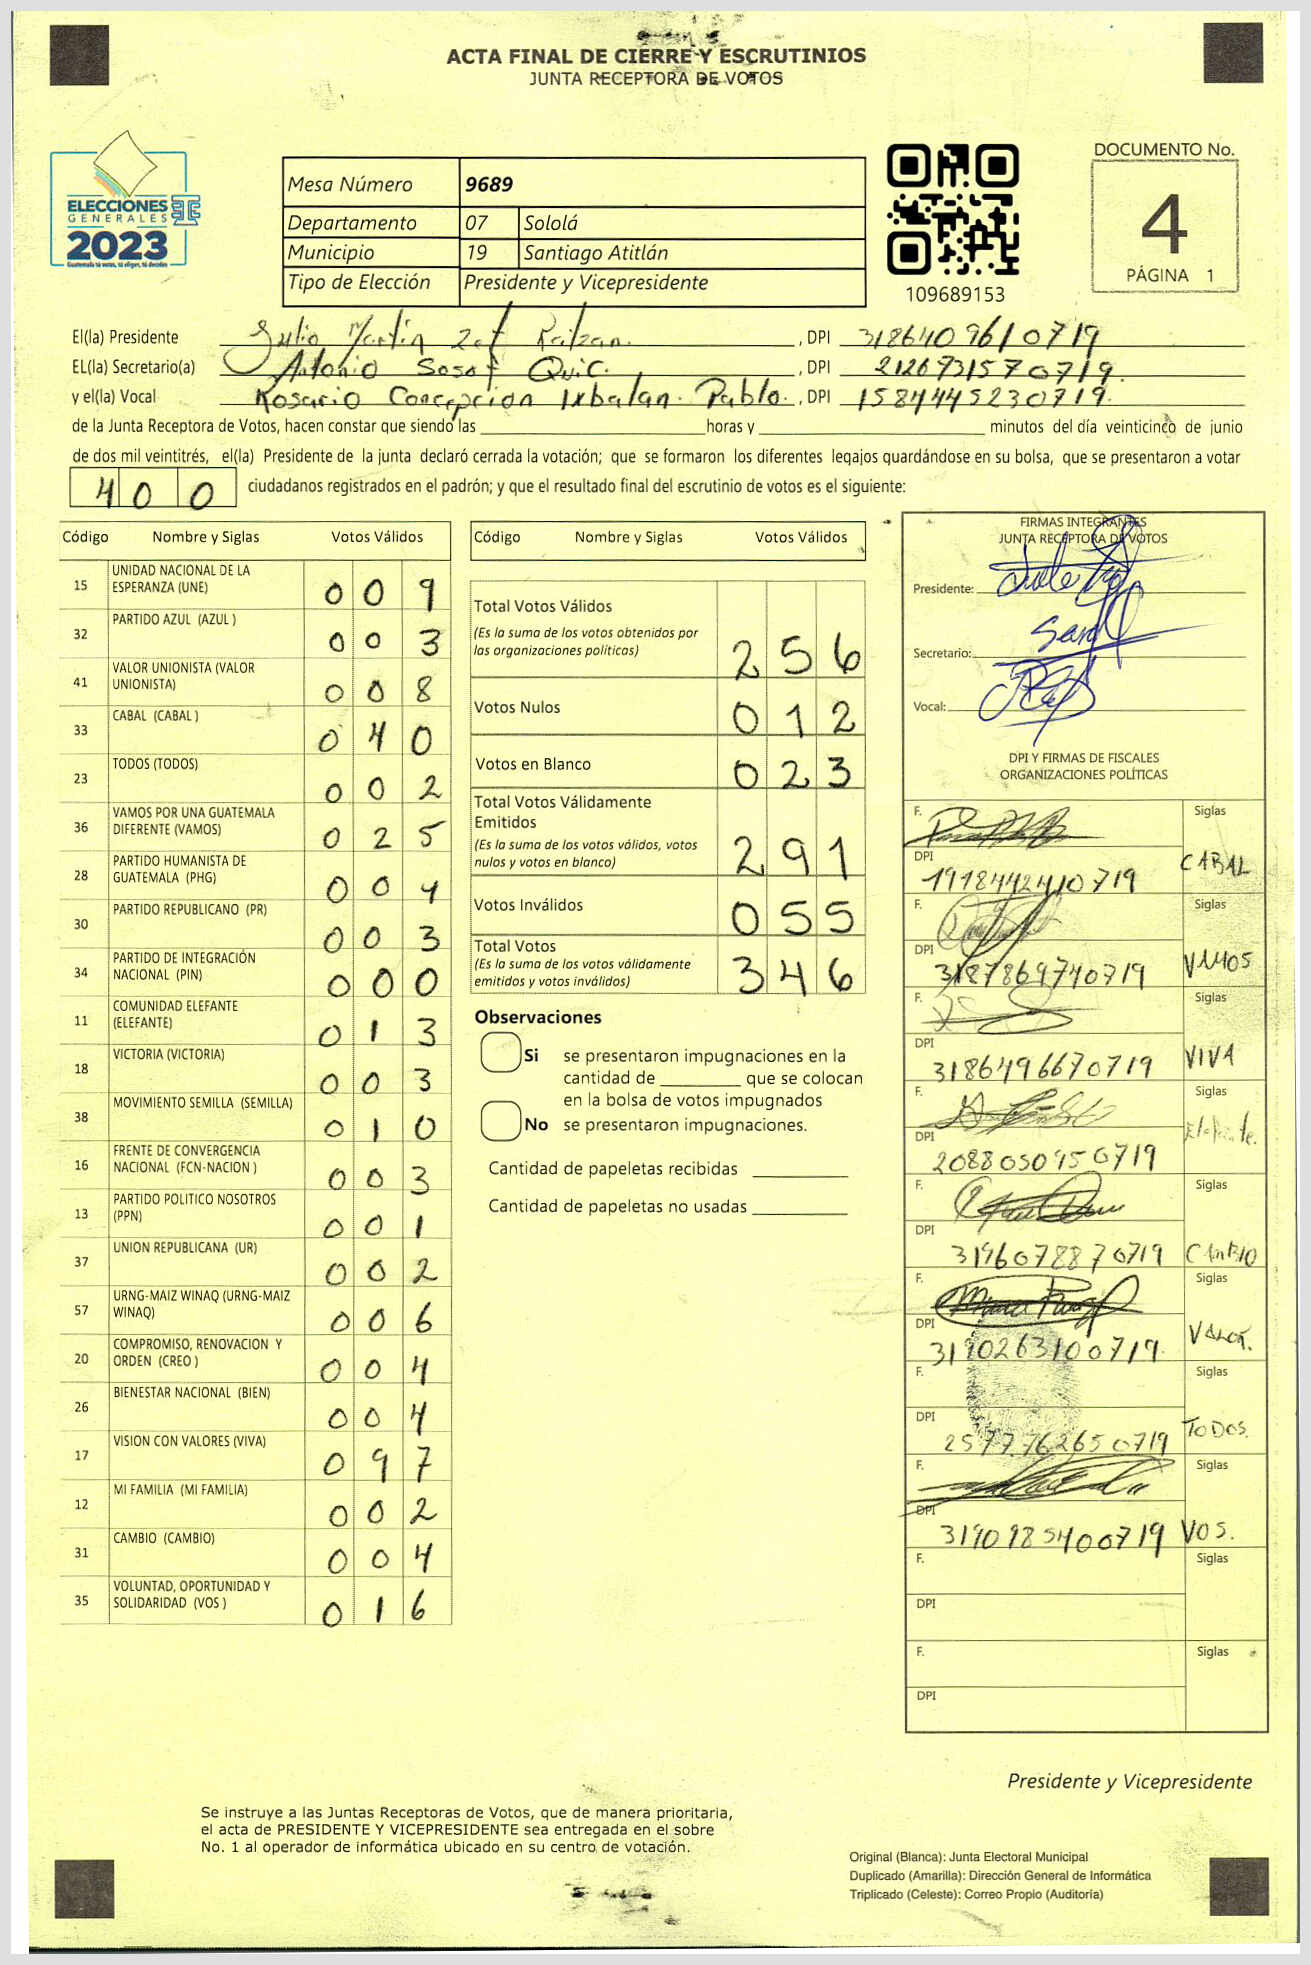 ACTA FINAL DE CIERRE Y ESCRUTINIOS
JUNTA RECEPTORA DE VOTOS
ELECCIONES
GENERALES
2023
Guatemala tú votas, tú eliges, tú decides
Mesa Número 9689
Departamento 07 Sololá
Municipio 19 Santiago Atitlán
Tipo de Elección Presidente y Vicepresidente
109689153
DOCUMENTO No.
4
PÁGINA 1
El(la) Presidente Julio Martín , DPI 3186409610719
EL(la) Secretario(a) Antonio Sosof Quic. , DPI 2126731570719.
y el(la) Vocal Rosario Concepcion Ixbalan Pablo. , DPI 1584445230719.
de la Junta Receptora de Votos, hacen constar que siendo las ____ horas y ____ minutos del día veinticinco de junio
de dos mil veintitrés, el(la) Presidente de la junta declaró cerrada la votación; que se formaron los diferentes legajos guardándose en su bolsa, que se presentaron a votar
400 ciudadanos registrados en el padrón; y que el resultado final del escrutinio de votos es el siguiente:
Código Nombre y Siglas Votos Válidos
15 UNIDAD NACIONAL DE LA ESPERANZA (UNE) 009
32 PARTIDO AZUL (AZUL ) 003
41 VALOR UNIONISTA (VALOR UNIONISTA) 008
33 CABAL (CABAL ) 040
23 TODOS (TODOS) 002
36 VAMOS POR UNA GUATEMALA DIFERENTE (VAMOS) 025
28 PARTIDO HUMANISTA DE GUATEMALA (PHG) 004
30 PARTIDO REPUBLICANO (PR) 003
34 PARTIDO DE INTEGRACIÓN NACIONAL (PIN) 000
11 COMUNIDAD ELEFANTE (ELEFANTE) 013
18 VICTORIA (VICTORIA) 003
38 MOVIMIENTO SEMILLA (SEMILLA) 010
16 FRENTE DE CONVERGENCIA NACIONAL (FCN-NACION ) 003
13 PARTIDO POLITICO NOSOTROS (PPN) 001
37 UNION REPUBLICANA (UR) 002
57 URNG-MAIZ WINAQ (URNG-MAIZ WINAQ) 006
20 COMPROMISO, RENOVACION Y ORDEN (CREO ) 004
26 BIENESTAR NACIONAL (BIEN) 004
17 VISION CON VALORES (VIVA) 097
12 MI FAMILIA (MI FAMILIA) 002
31 CAMBIO (CAMBIO) 004
35 VOLUNTAD, OPORTUNIDAD Y SOLIDARIDAD (VOS ) 016
Código Nombre y Siglas Votos Válidos
Total Votos Válidos 256
(Es la suma de los votos obtenidos por
las organizaciones políticas)
Votos Nulos 012
Votos en Blanco 023
Total Votos Válidamente
Emitidos 291
(Es la suma de los votos válidos, votos
nulos y votos en blanco)
Votos Inválidos 055
Total Votos 346
(Es la suma de los votos válidamente
emitidos y votos inválidos)
Observaciones
Si se presentaron impugnaciones en la
cantidad de ____ que se colocan
en la bolsa de votos impugnados
No se presentaron impugnaciones.
Cantidad de papeletas recibidas
Cantidad de papeletas no usadas
FIRMAS INTEGRANTES
JUNTA RECEPTORA DE VOTOS
Presidente:
Secretario:
Vocal:
DPI Y FIRMAS DE FISCALES
ORGANIZACIONES POLÍTICAS
F. Siglas
DPI 1918442410719 CABAL
F. Siglas
DPI 3187869740719 VAMOS
F. Siglas
DPI 3186496670719 VIVA
F. Siglas
DPI 2088050950719 Elefante.
F. Siglas
DPI 3196078870719 CAMBIO
F. Siglas
DPI 3190263100719. VALOR.
F. Siglas
DPI 2577762650719 TODOS.
F. Siglas
DPI 3190985400719 VOS.
F. Siglas
DPI
F. Siglas
DPI
Presidente y Vicepresidente
Se instruye a las Juntas Receptoras de Votos, que de manera prioritaria,
el acta de PRESIDENTE Y VICEPRESIDENTE sea entregada en el sobre
No. 1 al operador de informática ubicado en su centro de votación.
Original (Blanca): Junta Electoral Municipal
Duplicado (Amarilla): Dirección General de Informática
Triplicado (Celeste): Correo Propio (Auditoría)